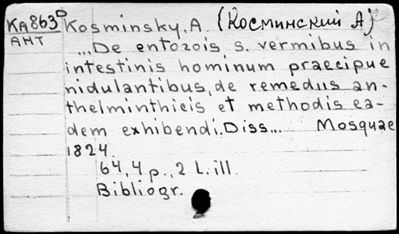 KA863D Kosminsky, A. (Косминский А)
АНТ
...De entozois s. vermibus in
intestinis hominum praecipue
nidulantibus, de remedus an-
thelminthicis et methodis ea-
dem exhibendi. Diss... Mosquae
1824.
64, 4 p., 2 L. ill.
Bibliogr.